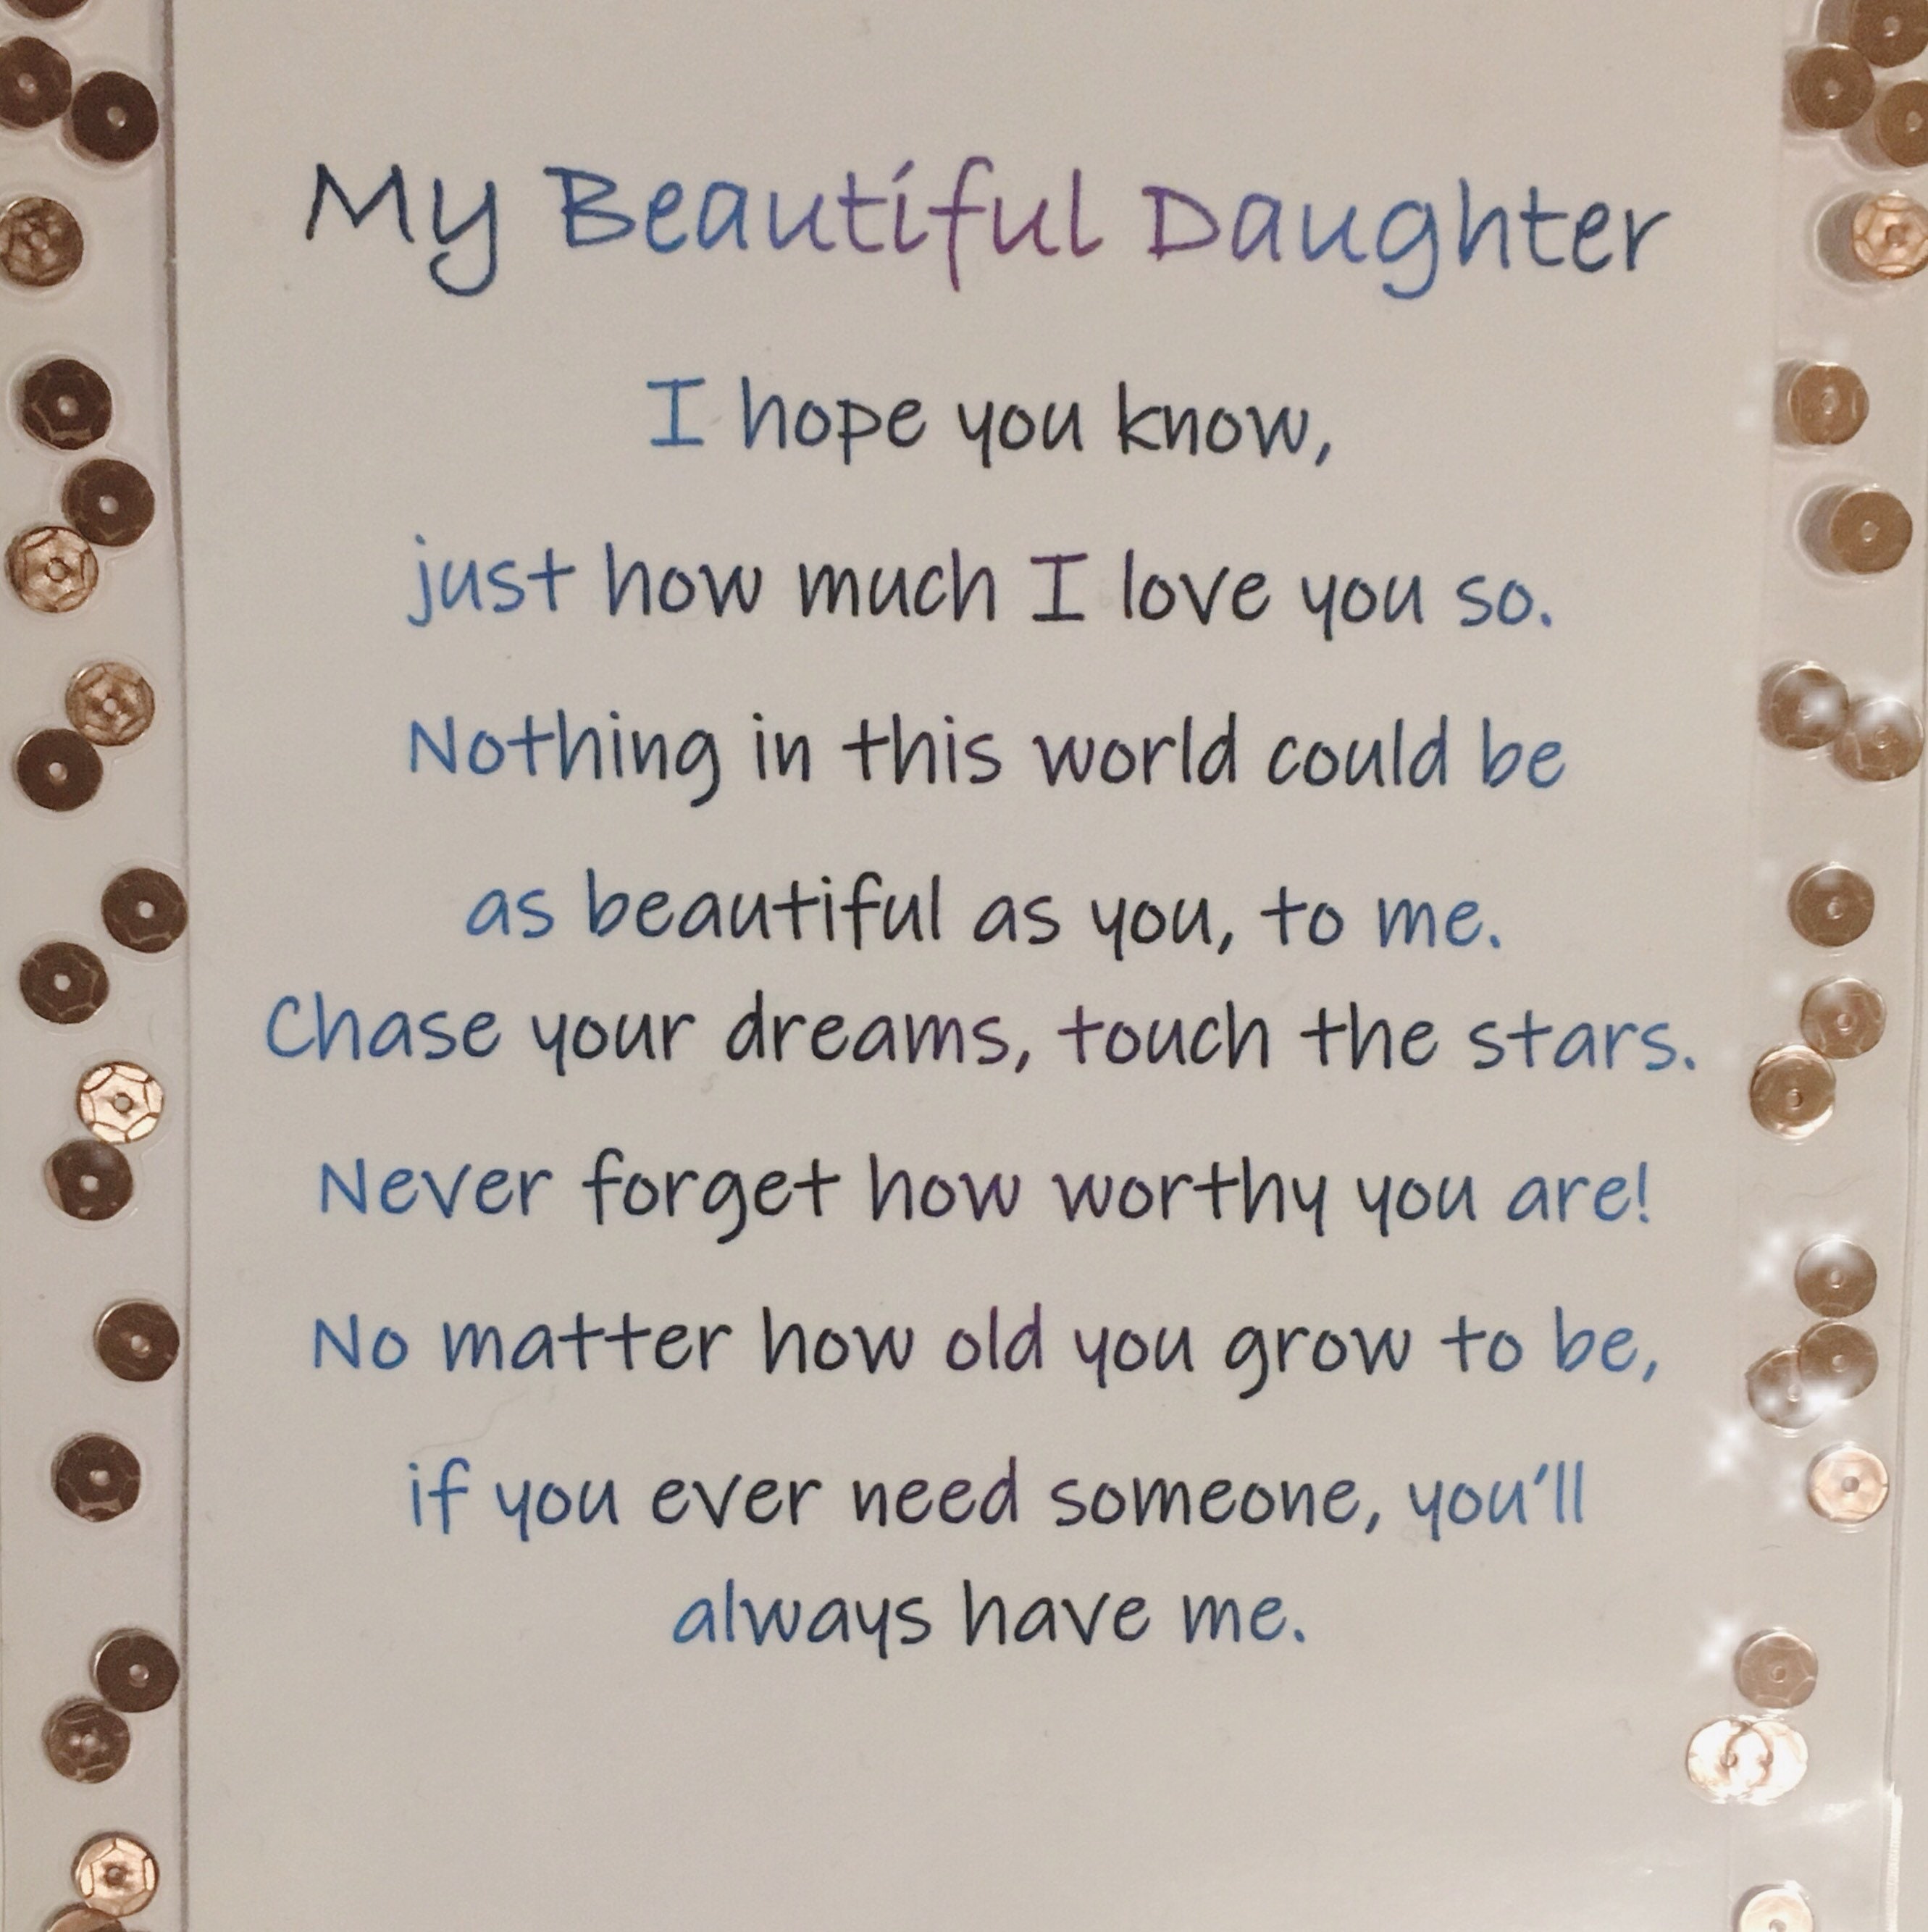 My Beautiful Daughter
I hope you know,
just how much I love you so.
Nothing in this world could be
as beautiful as you, to me.
Chase your dreams, touch the stars.
Never forget how worthy you are!
No matter how old you grow to be,
if you ever need someone, you'll
always have me.